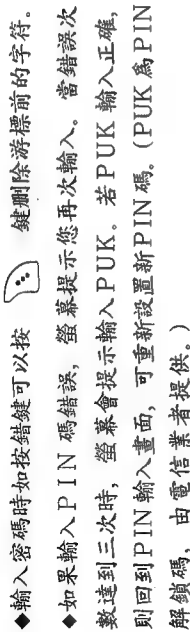 ◆輸入密碼時如按錯鍵可以按 鍵刪除游標前的字符。
◆如果輸入PIN 碼錯誤, 螢幕提示您再次輸入。當錯誤次
數達到三次時, 螢幕會提示輸入PUK。若PUK 輸入正確,
則回到PIN 輸入畫面, 可重新設置新PIN 碼。(PUK 為 PIN
解鎖碼, 由電信業者提供。)